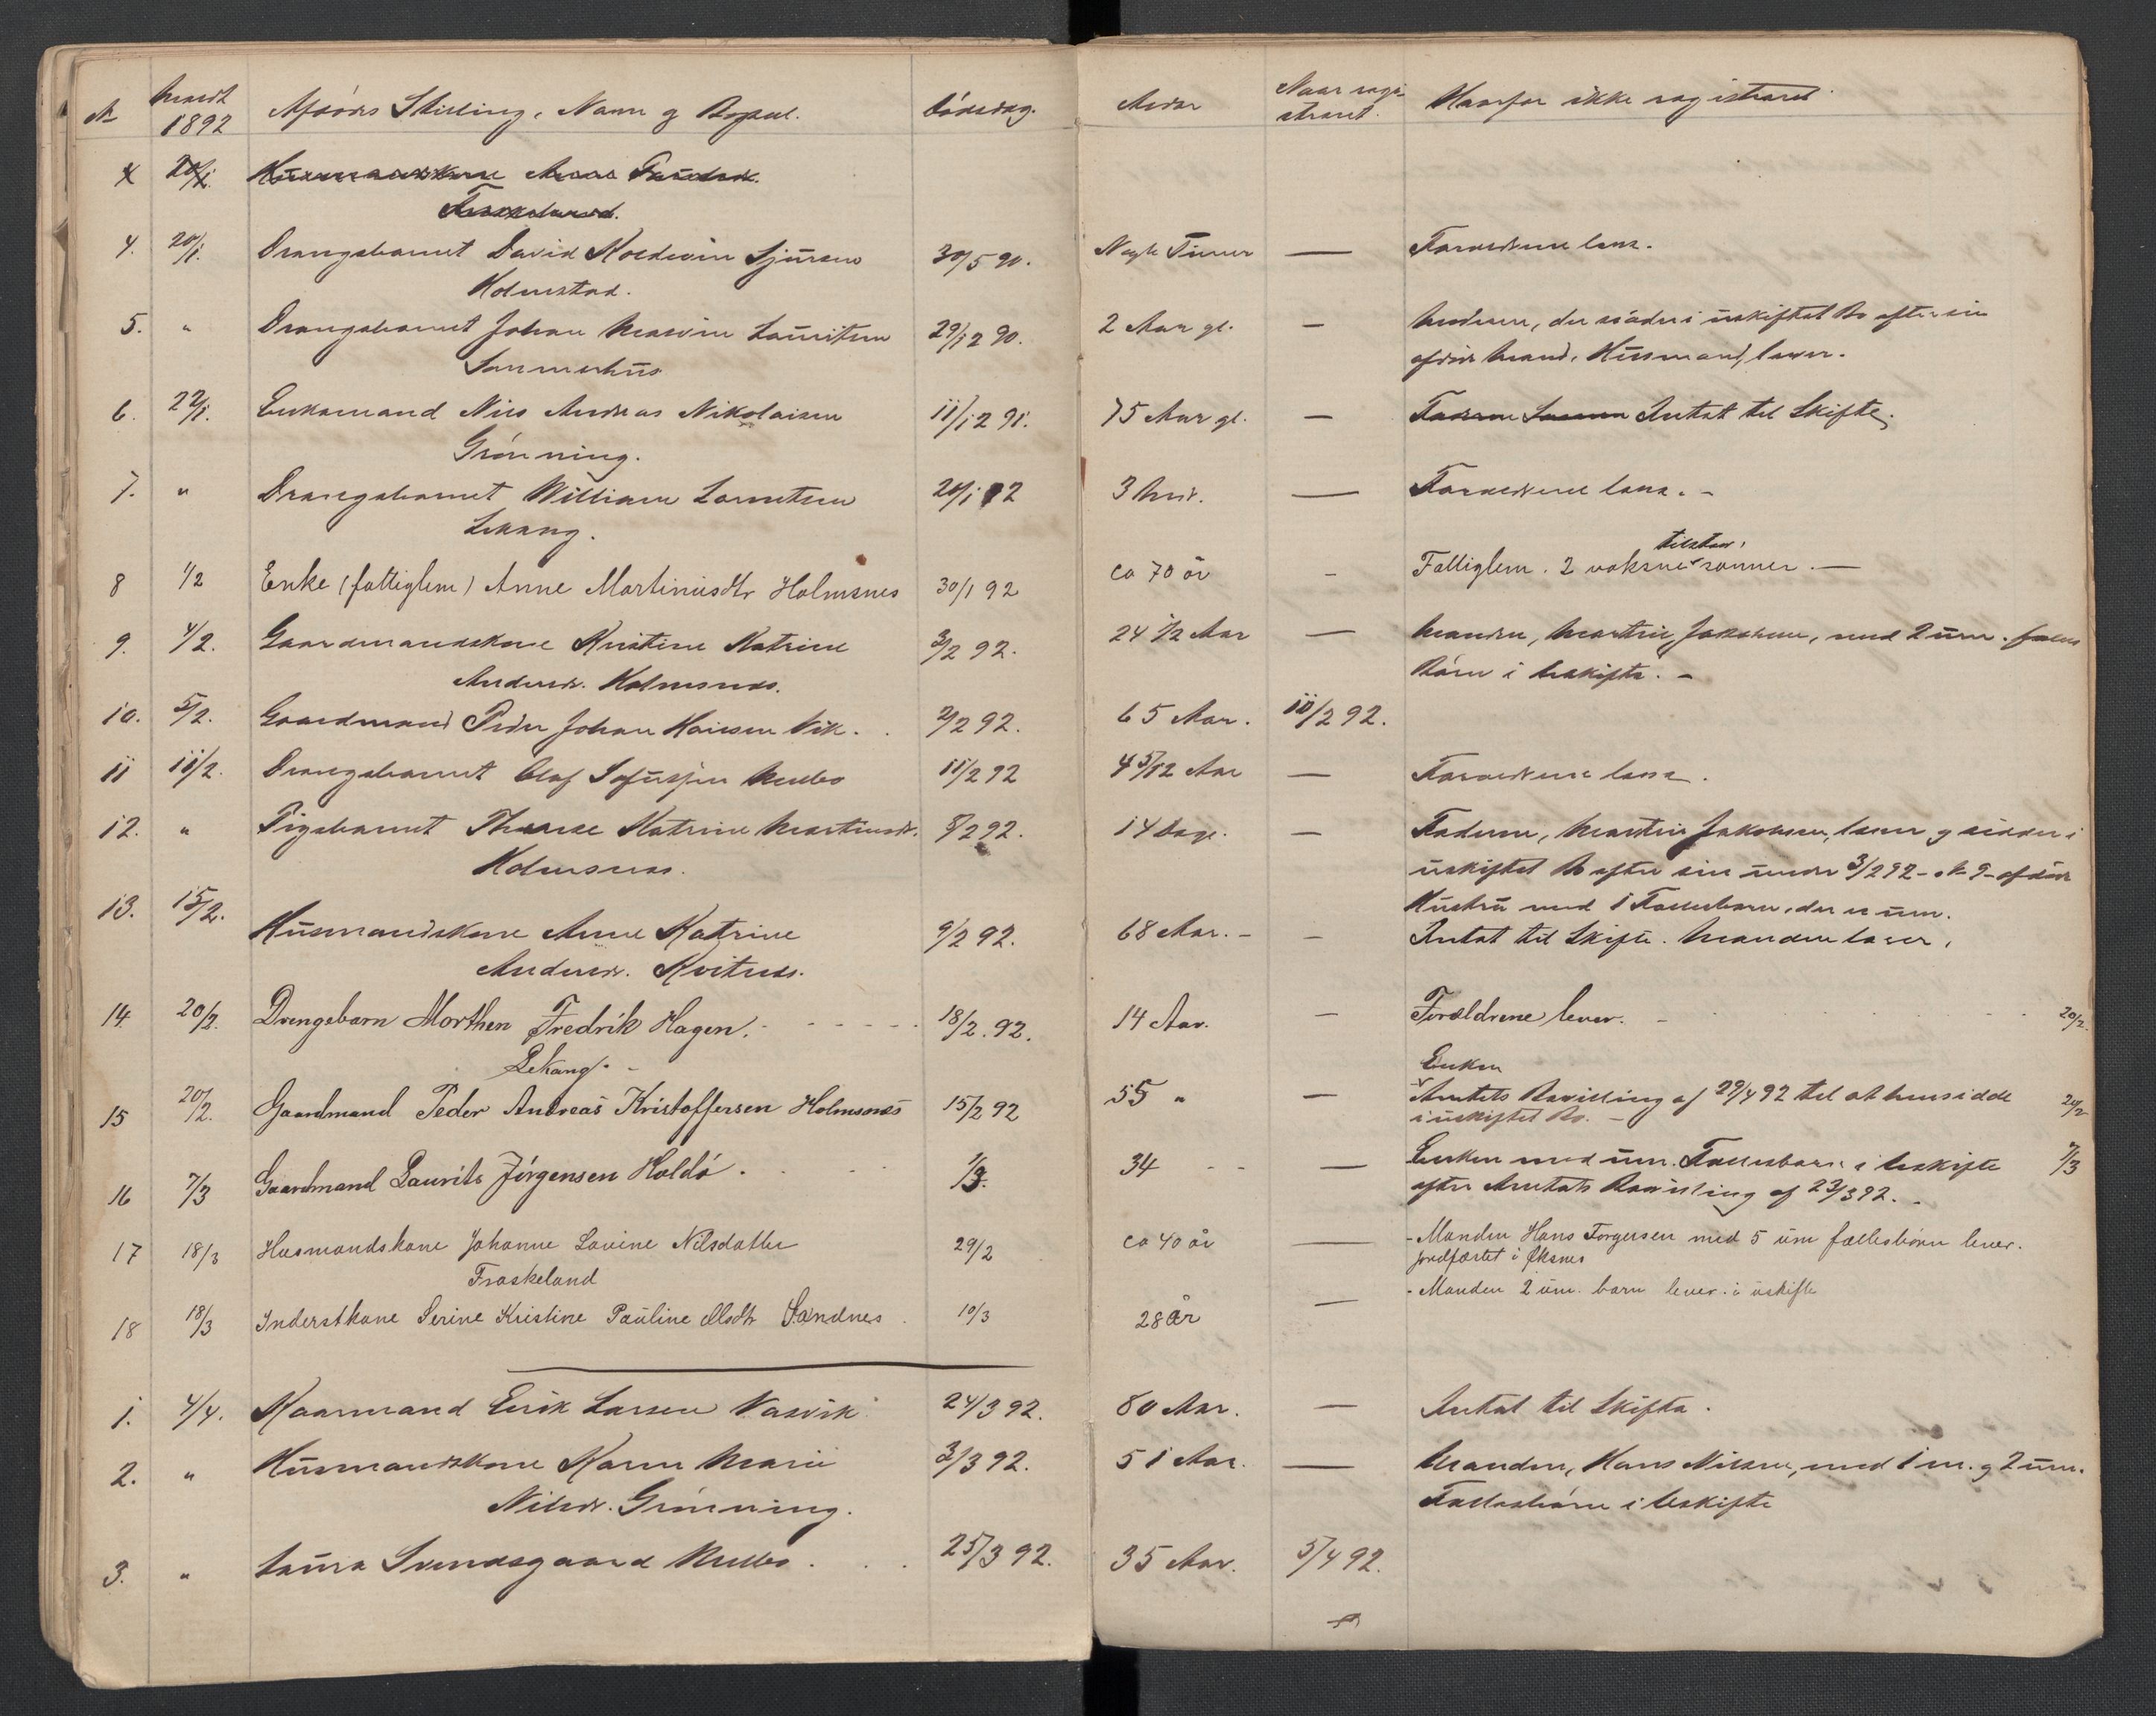 No Meldt 1892 Afdødes Stilling, Navn og Bopæl. Dødsdag. Alder Naar registreret. Hvorfor ikke registreret
4. 20/1. Drengebarnet David Koldevin Sjursen 30/5 90. Nogle Timer — Forældrene leve.
Holmstad.
5. " Drengebarnet Johan Lauritsen 29/12 90. 2 Aar gl. — Moderen, der sidder i uskiftet Bo efter sin
Sommerhus afdøde Mand, Husmand, lever.
6. 22/1. Enkemand Nils Andreas Nikolaisen 11/12 91. 75 Aar gl. — Antat til Skifte.
Grønning.
7. " Drengebarnet William Lorentsen 20/1 92 3 Mdr. — Forældrene leve. -
Lekang.
8 1/2 Enke (fattiglem) Anne Martinusdtr Holmsnes 30/1 92 ca 70 år - Fattiglem. 2 voksne sønner. —
9. 4/2. Gaardmandskone Kristine Katrine 3/2 92. 24 1/2 Aar — Manden, Martin Jakobsen, med 2 um. fælles
Andersdr. Holmsnes. Børn i Uskifte. -
10. 5/2. Gaardmand Peder Johan Hansen Vik. 2/2 92. 65 Aar. 10/2 92.
11 11/2. Drengebarnet Olaf Melbo 11/2 92 4 5/12 Aar — Forældrene leve.
12. " Pigebarnet Therese Katrine Martinsdr. 8/2 92. 14 Dage. — Faderen, Martin Jakobsen, lever og sidder i
Holmsnes. uskiftet Bo efter sin under 3/2 92 - No 9 - afdøde
Hustru med 1 Fællesbarn, der er um.
13. 15/2. Husmandskone Anne Katrine 9/2 92. 68 Aar. - - Antat til Skifte. Manden lever.
Andersdr. Kvitnes.
14. 20/2. Drengebarn Morthen Fredrik Hagen. 18/2. 92. 14 Aar. — Forældrene lever. - 20/2.
Lekang. -
15 20/2. Gaardmand Peder Andreas Kristoffersen Holmsnes 15/2 92 55 " — Enken
Amtets Bevilling af 29/4 92 til at hensidde 20/2
i uskiftet Bo. -
16 7/3 Gaardmand Laurits Jørgensen Haldø. 1/3. 34 - - — Enken med um. Fællesbarn i Uskifte 7/3
efter Amtets Bevilling af 23/3 92. -
17 18/3 Husmandskone Johanne Lavine Nilsdatter 29/2 ca 40 år — - Manden Hans Torgersen med 5 um fællesbørn lever.
Fraskeland jordfæstet i Øksnes
18 18/3 Inderstkone Serine Kristine Pauline Sandnes. 10/3 28 år — - Manden 2 um. barn lever. i uskifte
1. 4/4. Kaarmand Erik Larsen Vasvik 24/3 92. 80 Aar. — Antat til Skifte.
2. " Husmandskone Karen Marie 3/3 92. 51 Aar. — Manden, Hans Nilsen, med 1 m. og 2 um.
Nilsdr. Grønning. Fællesbørn i Uskifte
3. " Laura Svendsgaard Melbo. 25/3 92. 35 Aar. 5/4 92.